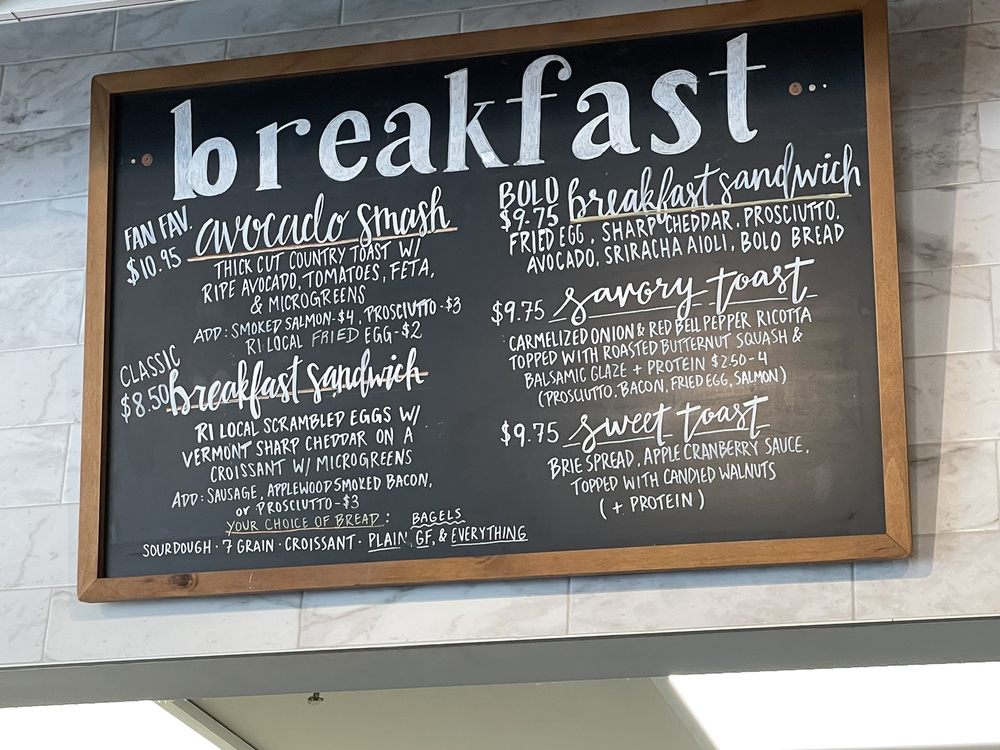 breakfast
FAN FAV.
$10.95
avocado smash
THICK CUT COUNTRY TOAST W/
RIPE AVOCADO, TOMATOES, FETA,
& MICROGREENS
ADD: SMOKED SALMON-$4, PROSCIUTTO-$3
RI LOCAL FRIED EGG-$2
CLASSIC
$8.50
breakfast sandwich
RI LOCAL SCRAMBLED EGGS W/
VERMONT SHARP CHEDDAR ON A
CROISSANT W/ MICROGREENS
ADD: SAUSAGE, APPLEWOOD SMOKED BACON,
or PROSCIUTTO-$3
YOUR CHOICE OF BREAD: BAGELS
SOURDOUGH · 7 GRAIN · CROISSANT · PLAIN, GF, & EVERYTHING
BOLD
$9.75
breakfast sandwich
FRIED EGG, SHARP CHEDDAR, PROSCIUTTO,
AVOCADO, SRIRACHA AIOLI, BOLO BREAD
$9.75 savory toast
CARMELIZED ONION & RED BELL PEPPER RICOTTA
TOPPED WITH ROASTED BUTTERNUT SQUASH &
BALSAMIC GLAZE + PROTEIN $2.50-4
(PROSCIUTTO, BACON, FRIED EGG, SALMON)
$9.75 sweet toast
BRIE SPREAD, APPLE CRANBERRY SAUCE,
TOPPED WITH CANDIED WALNUTS
(+ PROTEIN)